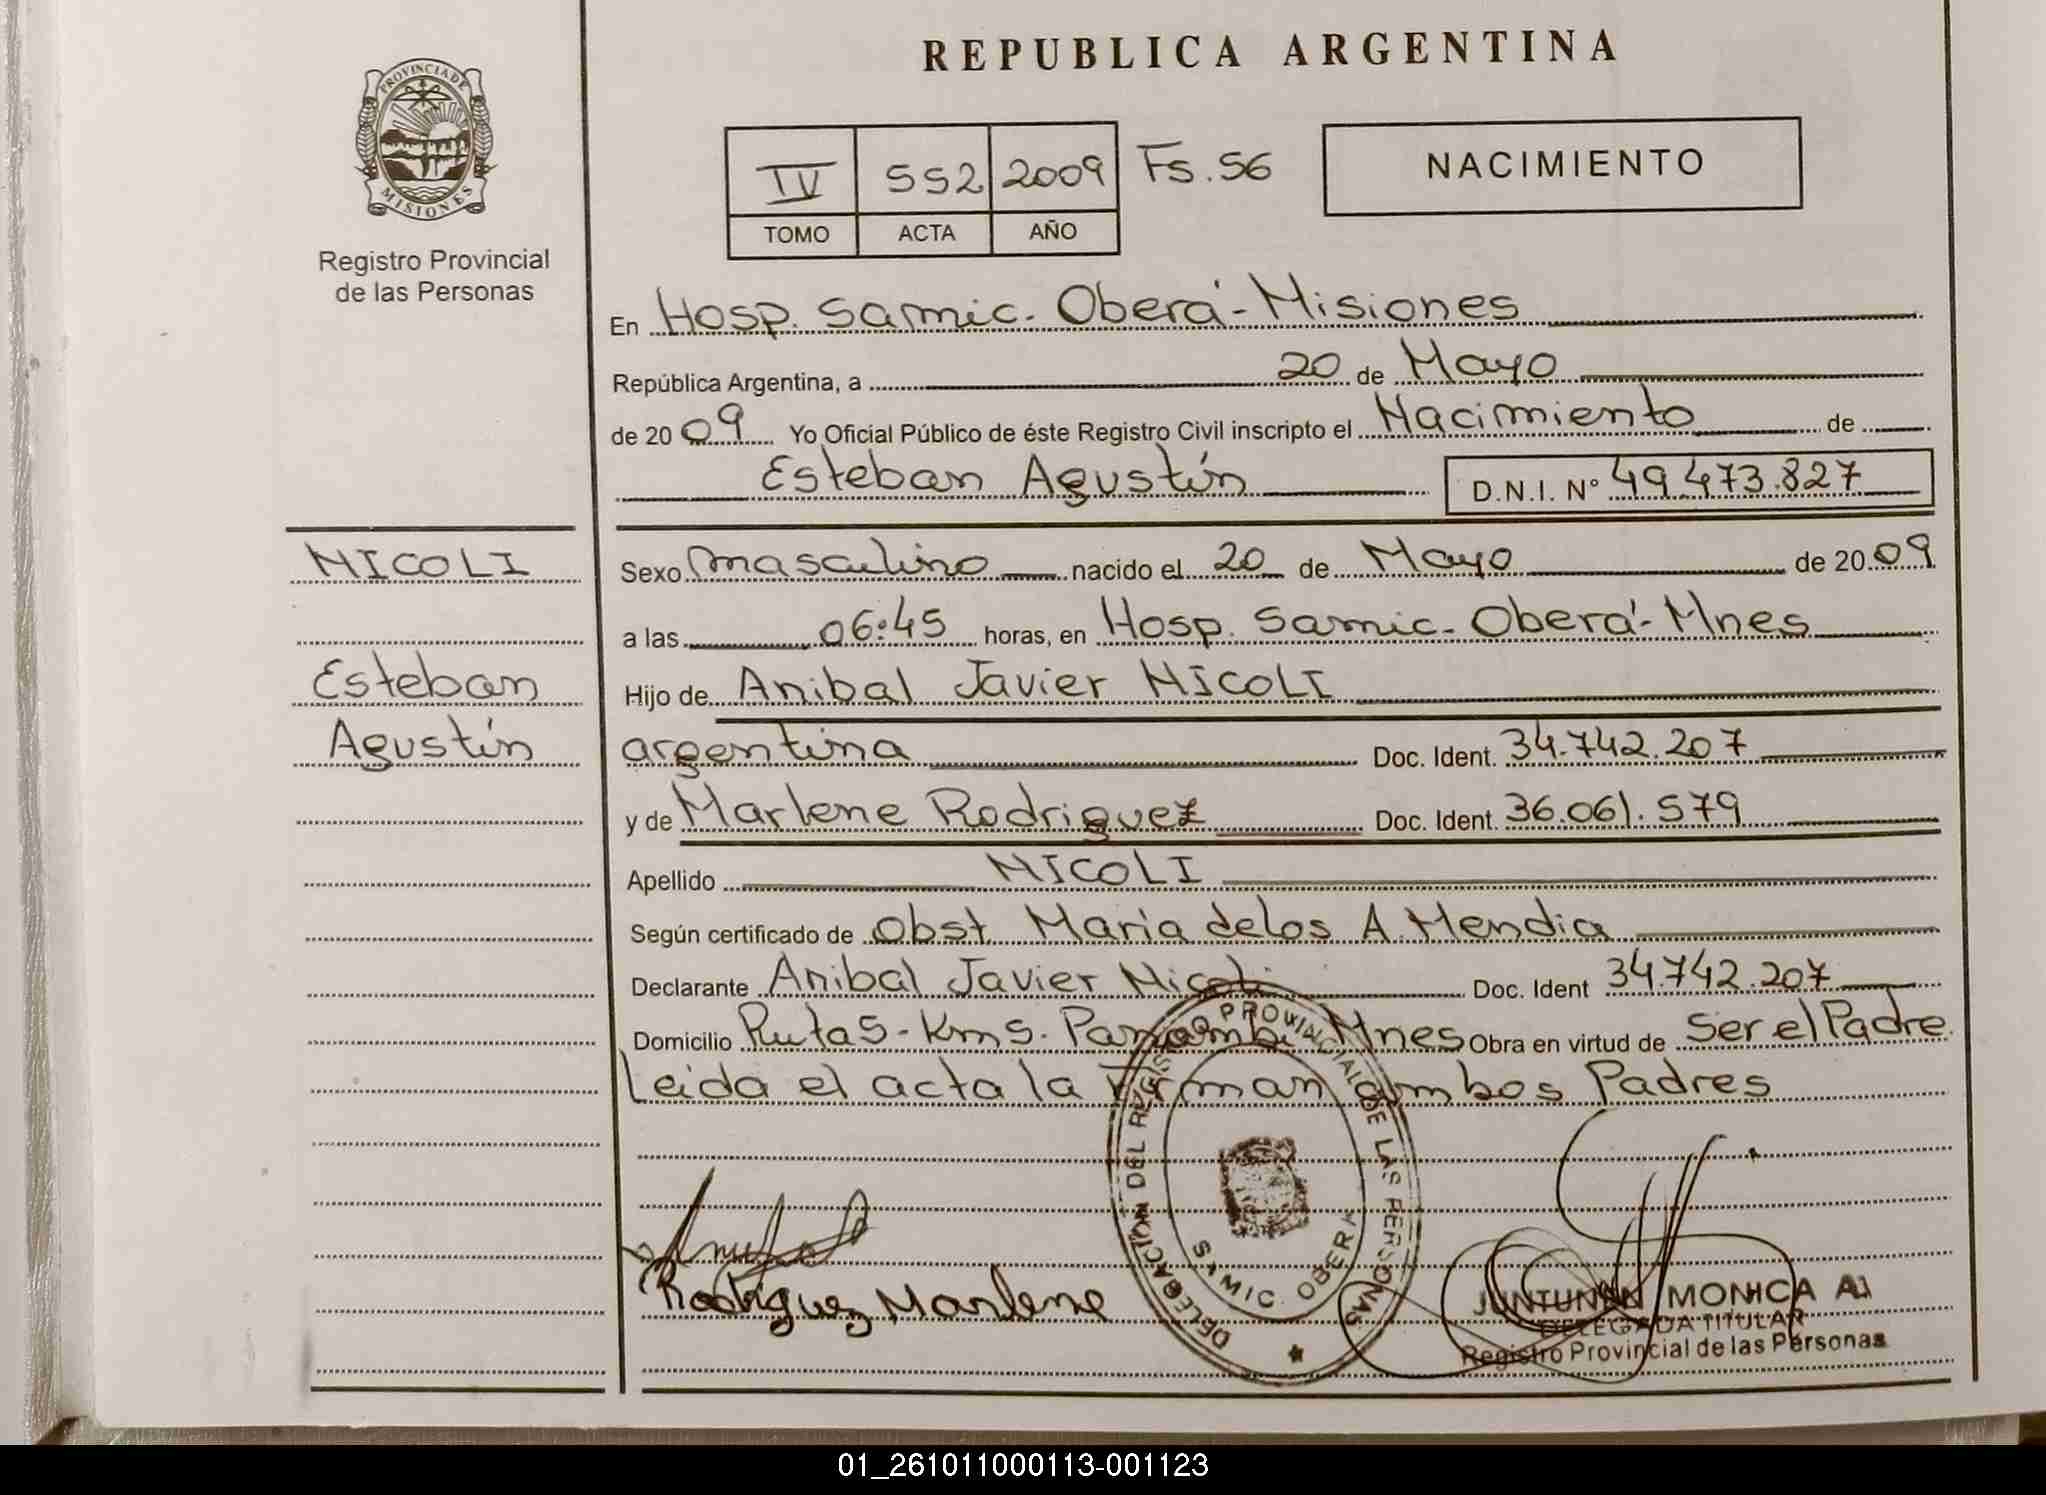 REPUBLICA ARGENTINA
PROVINCIA DE
MISIONES
Registro Provincial
de las Personas
IV 552 2009 Fs. 56
TOMO ACTA AÑO
NACIMIENTO
En Hosp. Samic. Oberá - Misiones
República Argentina, a 20 de Mayo
de 20 09 Yo Oficial Público de éste Registro Civil inscripto el Nacimiento de
Esteban Agustín D.N.I. Nº 49.473.827
NICOLI
Esteban
Agustín
Sexo masculino nacido el 20 de Mayo de 20 09
a las 06:45 horas, en Hosp. Samic. Oberá - Mnes
Hijo de Anibal Javier NICOLI
argentina Doc. Ident. 34.742.207
y de Marlene Rodriguez Doc. Ident. 36.061.579
Apellido NICOLI
Según certificado de Obst. Maria de los A. Mendia
Declarante Anibal Javier Nicoli Doc. Ident 34.742.207
Domicilio Ruta 5 - Km 5. Panambi Mnes Obra en virtud de Ser el Padre
Leida el acta la Firman ambos Padres
DELEGACION DEL REGISTRO PROVINCIAL DE LAS PERSONAS
SAMIC OBERA
Rodriguez Marlene
MONICA A.
DELEGADA TITULAR
Registro Provincial de las Personas
01_261011000113-001123